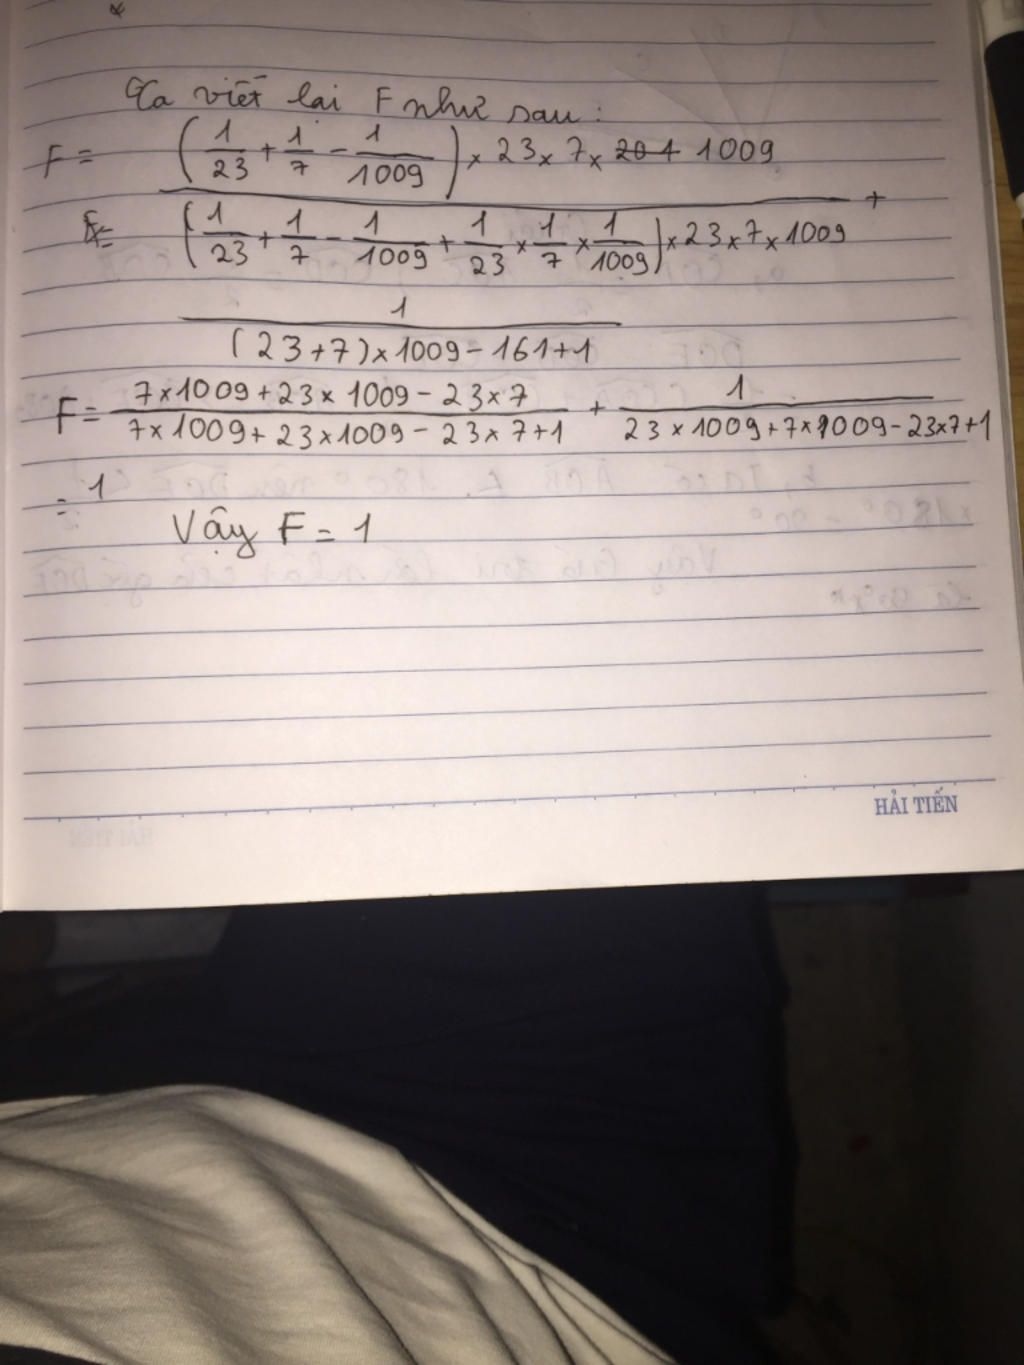 Ta viết lại F như sau:
F = (1/23 + 1/7 - 1/1009) × 23 × 7 × 1009
(1/23 + 1/7 - 1/1009 + 1/23 × 1/7 × 1/1009) × 23 × 7 × 1009 +
1
(23+7) × 1009 - 161 + 1
F = 7 × 1009 + 23 × 1009 - 23 × 7 / 7 × 1009 + 23 × 1009 - 23 × 7 + 1 + 1 / 23 × 1009 + 7 × 1009 - 23 × 7 + 1
= 1
Vậy F = 1
HẢI TIẾN